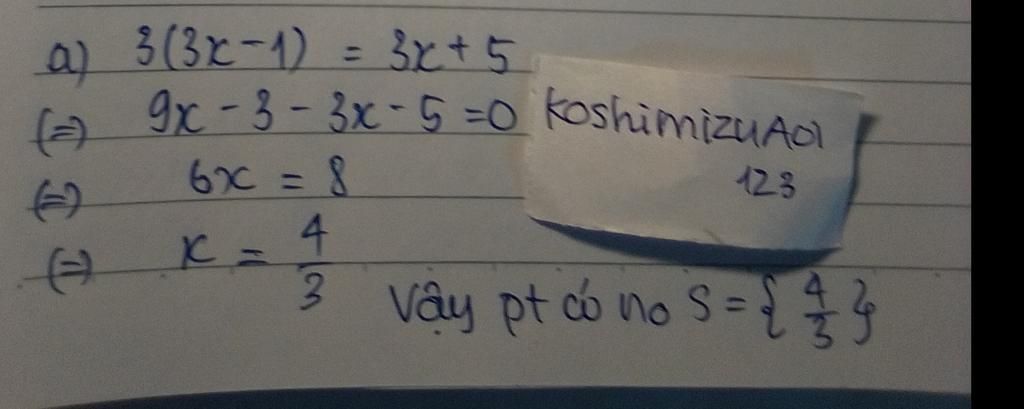 a) 3(3x-1) = 3x+5
(=) 9x - 3 - 3x - 5 = 0
(=) 6x = 8
(=) x = 4/3
Vậy pt có no S = { 4/3 }
KoshimizuAoi
123